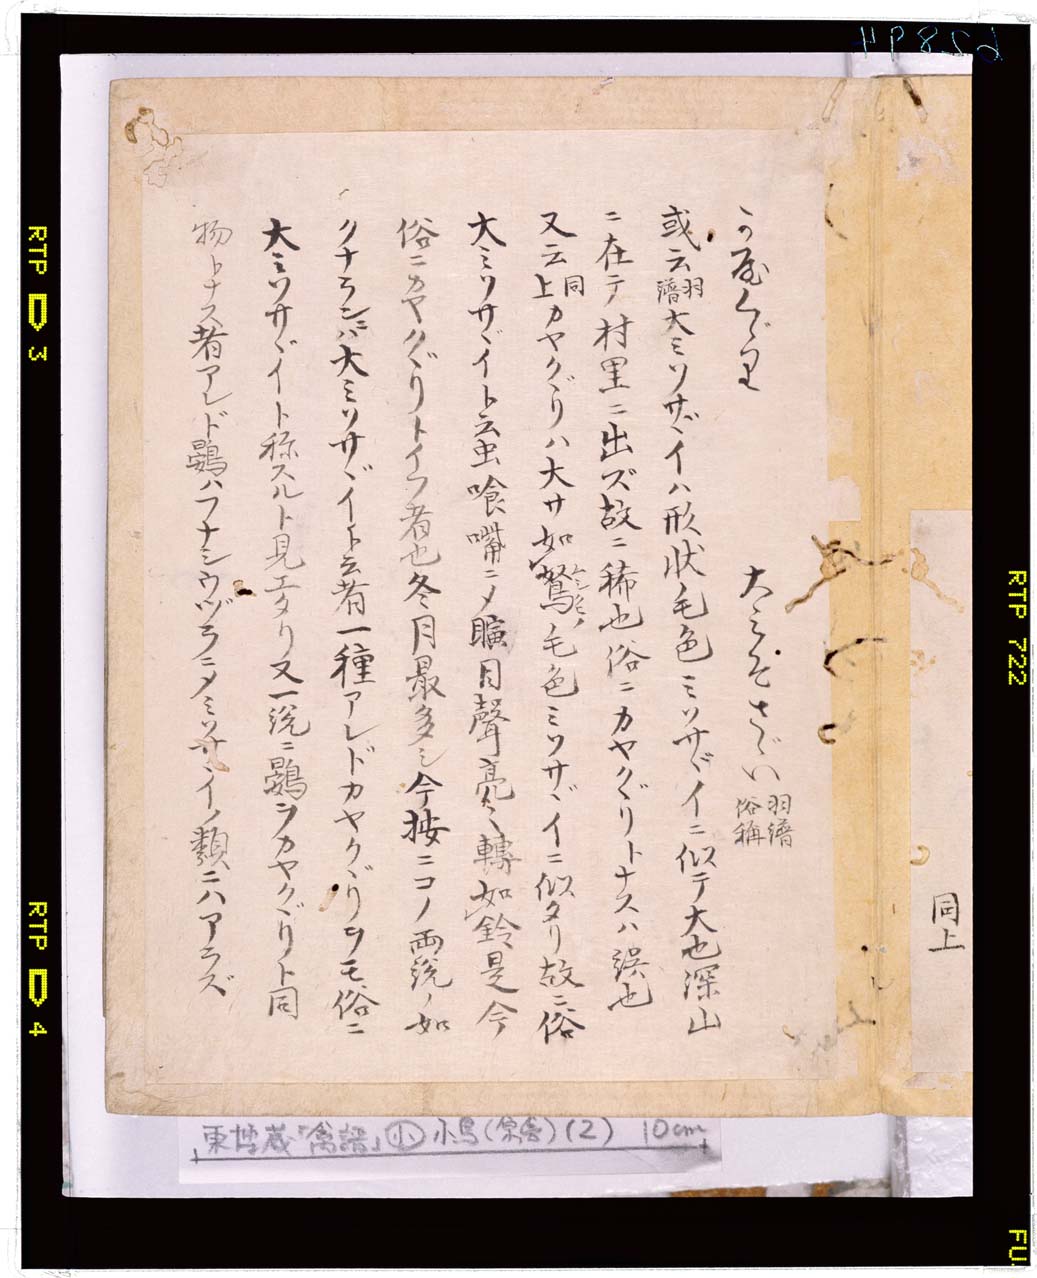 かやくゞり　大みそさゞい 羽譜俗稱
或云羽譜大ミソサヾイハ形状毛色ミソサヾイニ似テ大也深山
ニ在テ村里ニ出ズ故ニ稀也俗ニカヤクヾリトナスハ誤也
又云同上カヤクヾリハ大サ如鶩毛色ミソサヾイニ似タリ故ニ俗
大ミソサヾイト云虫喰嘴ニメ曠目聲亮々轉如鈴是今
俗ニカヤクヾリトイフ者也冬月最多シ今按ニコノ両説ノ如
クナランニハ大ミソサヾイト云者一種アレドカヤクヾリヲモ俗ニ
大ミソサヾイト称スルト見エタリ又一説ニ鷃ヲカヤクヾリト同
物トナス者アレド鷃ハフナシウヅラニメミソサヾイノ類ニハアラズ
同上
東博蔵「禽譜」小 小鳥(2) 10cm
RTP 3
RTP 4
RTP 722
FU